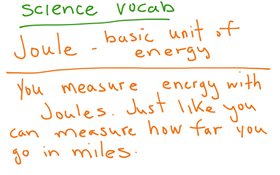 science vocab
Joule - basic unit of
energy
You measure energy with
Joules. Just like you
can measure how far you
go in miles.